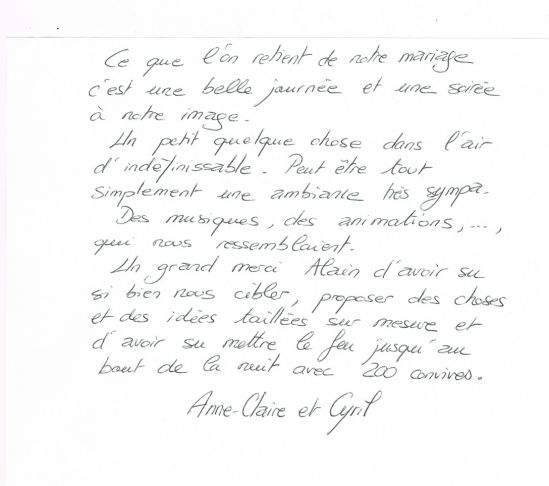 Ce que l'on retient de notre mariage
c'est une belle journée et une soirée
à notre image.
Un petit quelque chose dans l'air
d'indéfinissable. Peut être tout
simplement une ambiance très sympa.
Des musiques, des animations, ...,
qui nous ressemblaient.
Un grand merci Alain d'avoir su
si bien nous cibler, proposer des choses
et des idées taillées sur mesure et
d'avoir su mettre le feu jusqu'au
bout de la nuit avec 200 convives.
Anne-Claire et Cyril